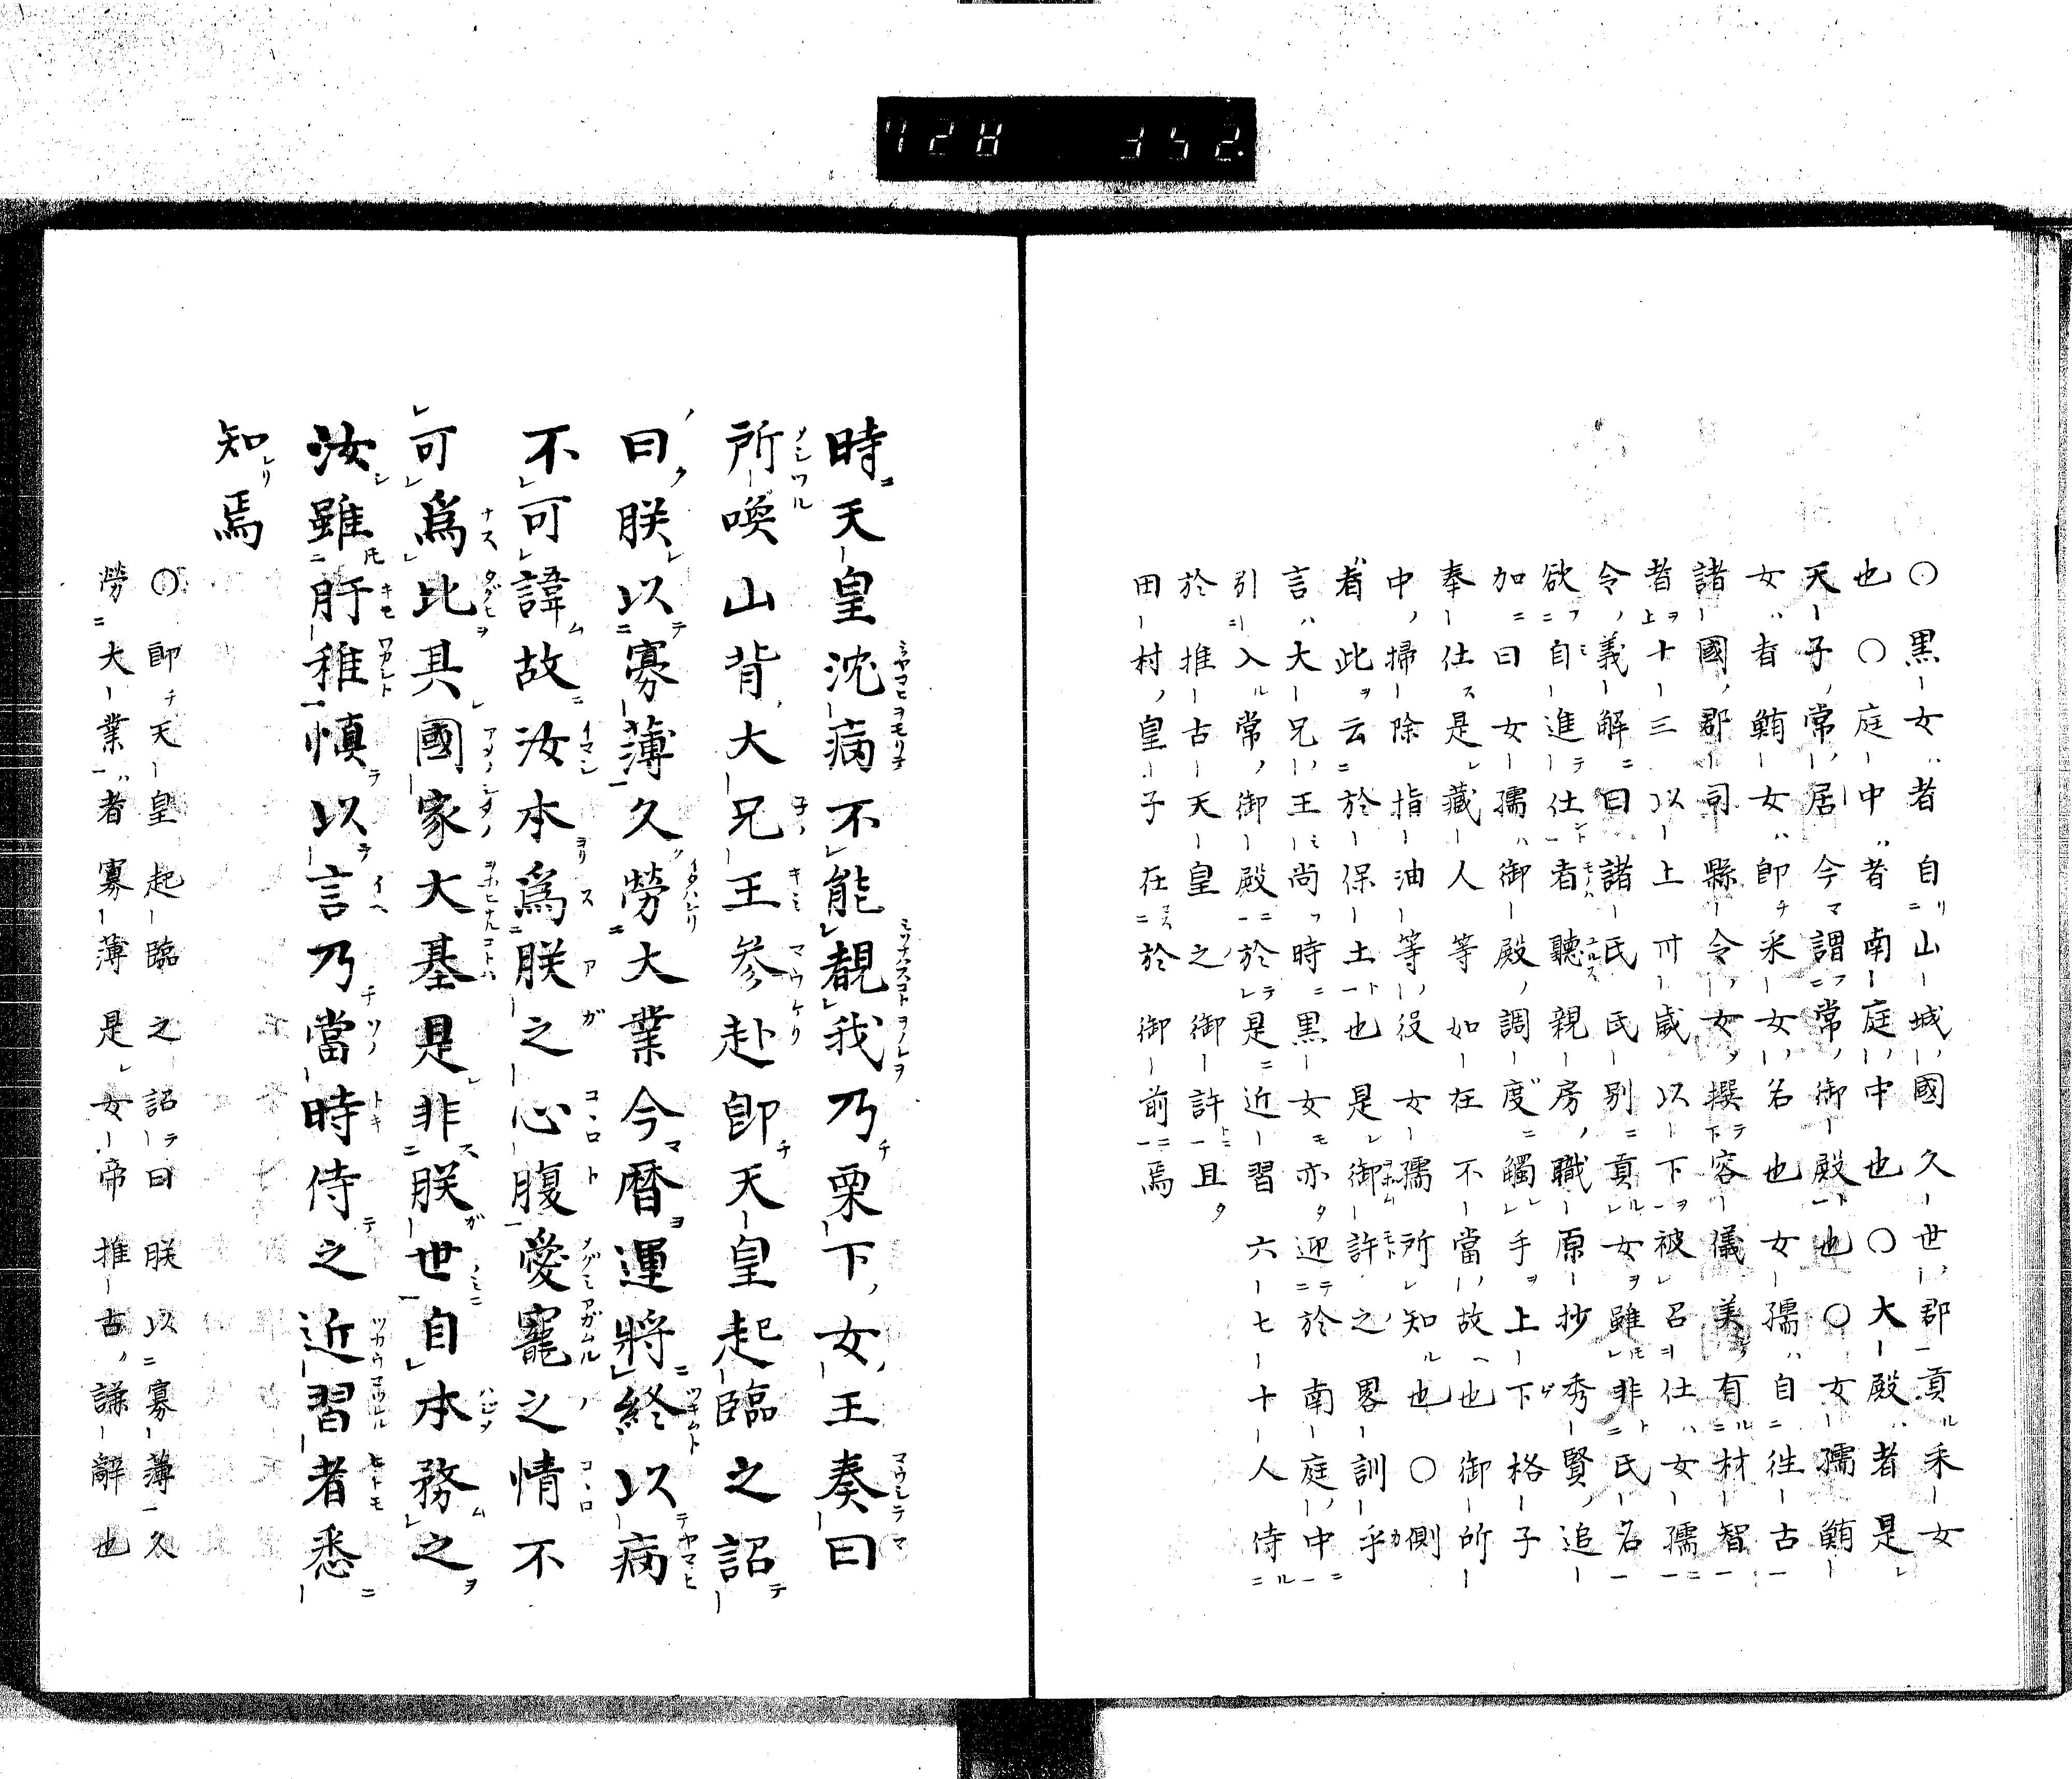 728 352
○黒女者自山城國久世郡貢采女
也○庭中者南庭中也○大殿者是
天子常居今謂常御殿也○女孺鮪
女者鮪女即采女名也女孺自往古
諸國郡司縣令女撰容儀美有材智
者十三以上卅歳以下被召仕女孺
令義解曰諸氏氏別貢女雖非氏名
欲自進仕者聽親房職原抄秀賢追
加曰女孺御殿調度觸手上下格子
奉仕是藏人等如在不當故也御所
中掃除指油等役女孺所知也○側
者此云於保土也是御許之畧訓乎
言大兄王尚時黒女亦迎於南庭中
引入常御殿於是近習六七十人侍
於推古天皇之御許且
田村皇子在於御前焉
時天皇沈病不能覩我乃栗下女王奏曰
所喚山背大兄王參赴即天皇起臨之詔
曰朕以寡薄久勞大業今暦運將終以病
不可諱故汝本爲朕之心腹愛寵之情不
可爲比其國家大基是非朕世自本務之
汝雖肝稚慎以言乃當時侍之近習者悉
知焉
○即天皇起臨之詔曰朕以寡薄久
勞大業者寡薄是女帝推古謙辭也